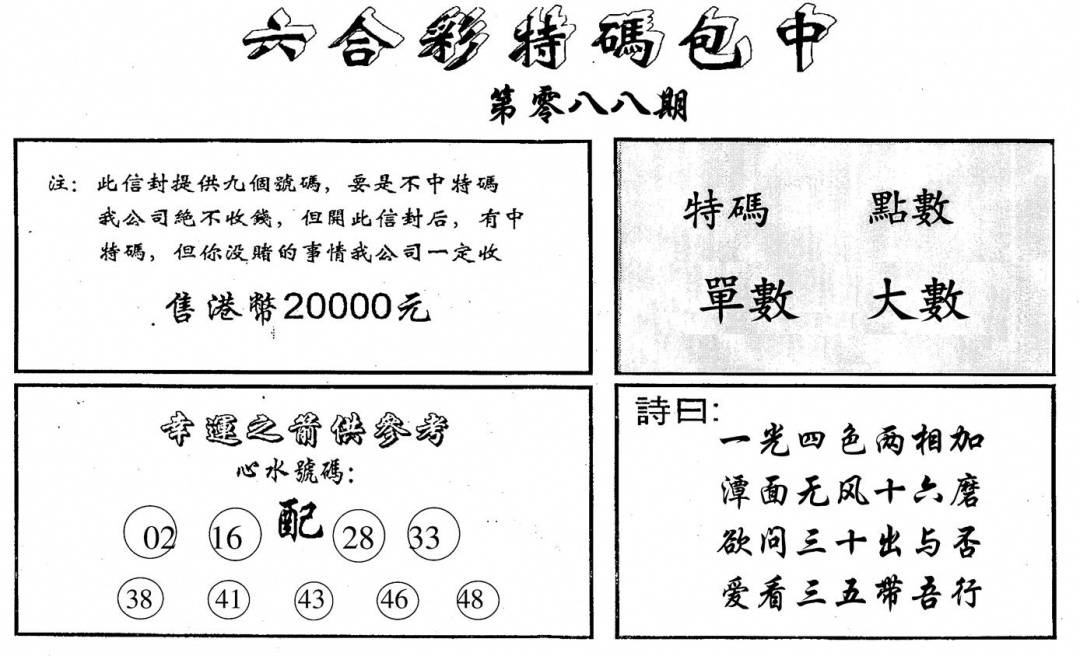 六合彩特碼包中
第零八八期
注：此信封提供九個號碼，要是不中特碼
我公司絶不收錢，但開此信封后，有中
特碼，但你没賭的事情我公司一定收
售港幣20000元
特碼 點數
單數 大數
幸運之箭供參考
心水號碼：
02 16 配 28 33
38 41 43 46 48
詩曰：
一光四色两相加
潭面无风十六磨
欲问三十出与否
爱看三五带吾行